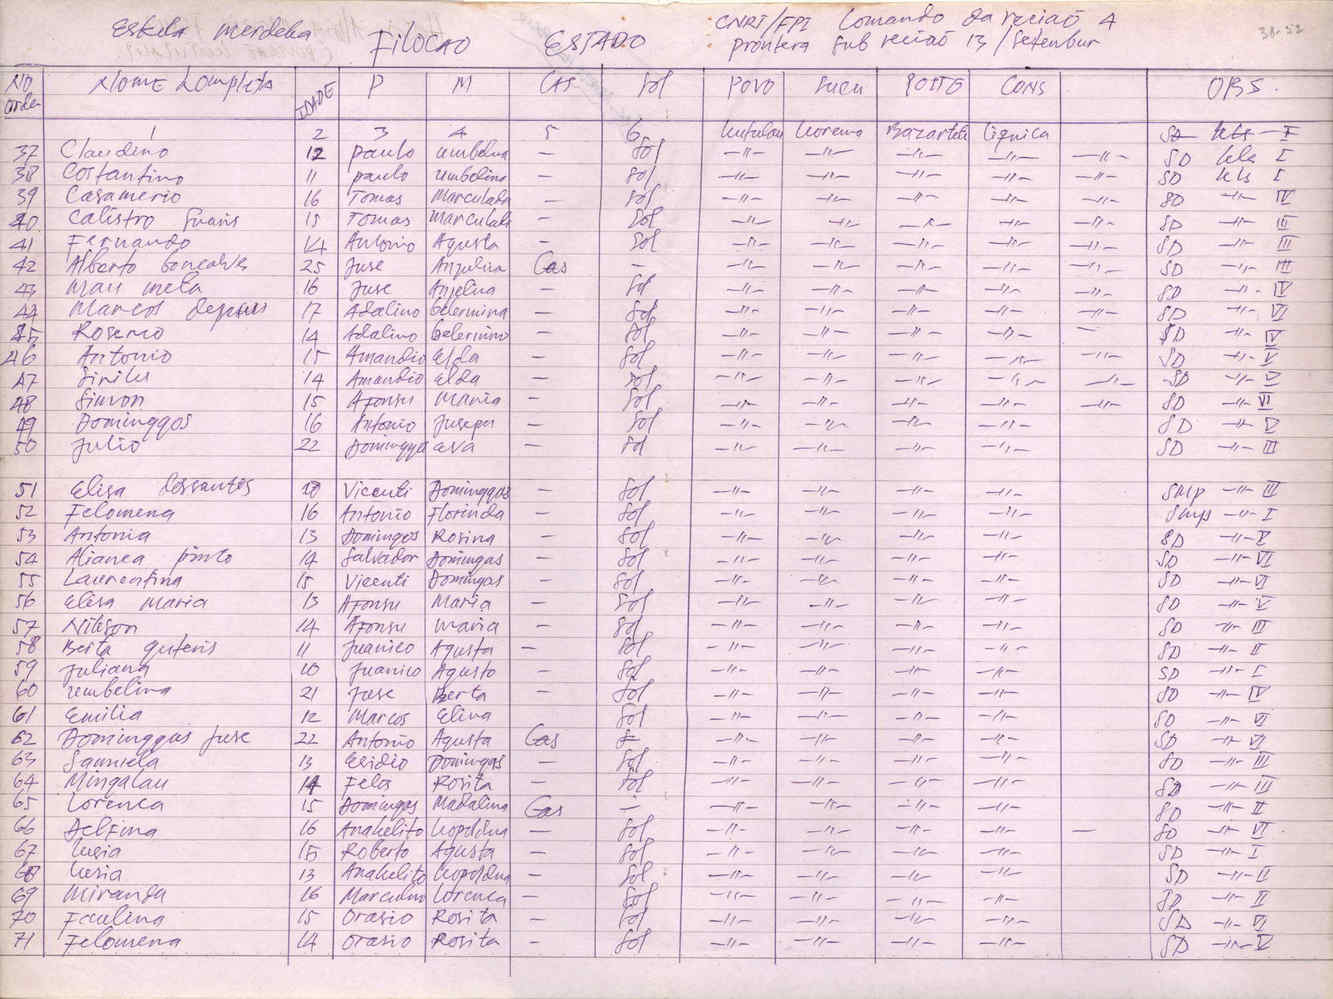 Eskula merdeka FiLOCAO ESTADO CNRT/FPI Comando da reciaõ 4
prontera Sub reciaõ 13 / Setenbur 38-52
NO orden NOME Completa IDADE P M CAS Sol POVO SUCU POSTO CONS OBS.
1 2 3 4 5 6 Lorema Bazartete Liquica SD kls I
37 Claudino 12 paulo umbelina — Sol —"— —"— —"— —"— —"— SD kls I
38 Costantino 11 paulo umbelina — Sol —"— —"— —"— —"— —"— SD kls I
39 Casamerio 16 Tomas Marculada — Sol —"— —"— —"— —"— —"— SD —"— IV
40 Calistro 15 Tomas Marculada — Sol —"— —"— —"— —"— —"— SD —"— III
41 Fernando 14 Antonio Agusta — Sol —"— —"— —"— —"— —"— SD —"— III
42 Alberto Goncalves 25 Juse Anjelina Cas — —"— —"— —"— —"— —"— SD —"— III
43 Mau meta 16 Juse Anjelina — Sol —"— —"— —"— —"— —"— SD —"— IV
44 Marcos 17 Adalino Gelermina — Sol —"— —"— —"— —"— —"— SD —"— VI
45 Roserio 14 Adalino Gelermino — Sol —"— —"— —"— —"— — SD —"— IV
46 Antonio 15 Amandio Elda — Sol —"— —"— —"— —"— —"— SD —"— V
47 14 Amandio Elda — Sol —"— —"— —"— —"— —"— SD —"— V
48 Simon 15 Afonsu Maria — Sol —"— —"— —"— —"— —"— SD —"— VI
49 Dominggos 16 Antonio Jusepa — Sol —"— —"— —"— —"— SD —"— V
50 Julio 22 Domingga eva — Sol —"— —"— —"— —"— SD —"— III
51 Elisa Dossantes 18 Vicenti Dominggos — Sol —"— —"— —"— —"— Smp —"— III
52 Felomena 16 Antonio Florinda — Sol —"— —"— —"— —"— Smp —"— I
53 Antonia 13 Domingos Rosina — Sol —"— —"— —"— —"— SD —"— V
54 Alianca pinto 14 Salvador Domingas — Sol —"— —"— —"— —"— SD —"— VI
55 Laurentina 15 Vicenti Domingas — Sol —"— —"— —"— —"— SD —"— VI
56 Elisa Maria 13 Afonsu Maria — Sol —"— —"— —"— —"— SD —"— V
57 Nikson 14 Afonsu Maria — Sol —"— —"— —"— —"— SD —"— III
58 Berta guteris 11 Juanico Agusta — Sol —"— —"— —"— —"— SD —"— II
59 Juliana 10 Juanico Agusto — Sol —"— —"— —"— —"— SD —"— I
60 umbelina 21 Juse Berta — Sol —"— —"— —"— —"— SD —"— IV
61 Emilia 12 Marcos Elina — Sol —"— —"— —"— —"— SD —"— VI
62 Dominggas Juse 22 Antonio Agusta Cas —"— —"— —"— —"— SD —"— VI
63 Samiela 13 Ecidio Domingas — Sol —"— —"— —"— —"— SD —"— III
64 Mingalau 14 Fela Rosita — Sol —"— —"— —"— —"— SD —"— III
65 Lorenca 15 Domingas Madalina Cas — —"— —"— —"— —"— SD —"— II
66 Delfina 16 Anakelito Liopoldina — Sol —"— —"— —"— —"— — SD —"— VI
67 Lusia 15 Roberto Agusta — Sol —"— —"— —"— —"— SD —"— I
68 Lusia 13 Anakelito Liopoldina — Sol —"— —"— —"— —"— SD —"— II
69 Miranda 16 Marculino Lorenca — Sol —"— —"— —"— —"— SD —"— II
70 Faulina 15 Orasio Rosita — Sol —"— —"— —"— —"— SD —"— VI
71 Felomena 14 Orasio Rosita — Sol —"— —"— —"— —"— SD —"— V